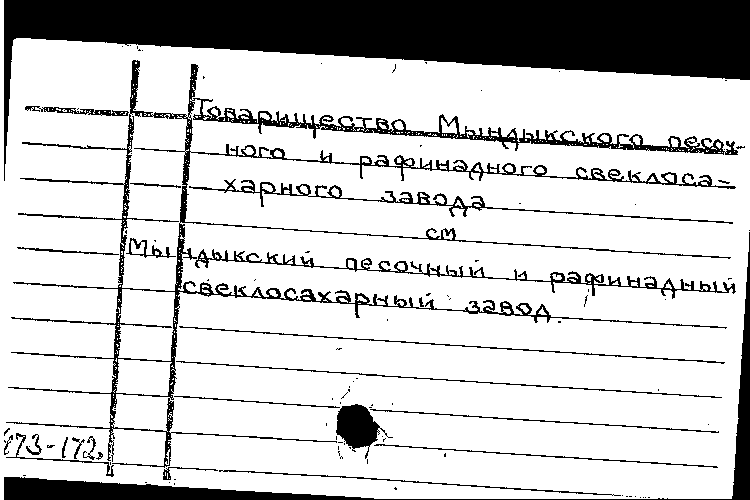 Товарищество Мындыкского песоч-
ного и рафинадного свеклоса-
харного завода
см
Мындыкский песочный и рафинадный
свеклосахарный завод.
473-172.